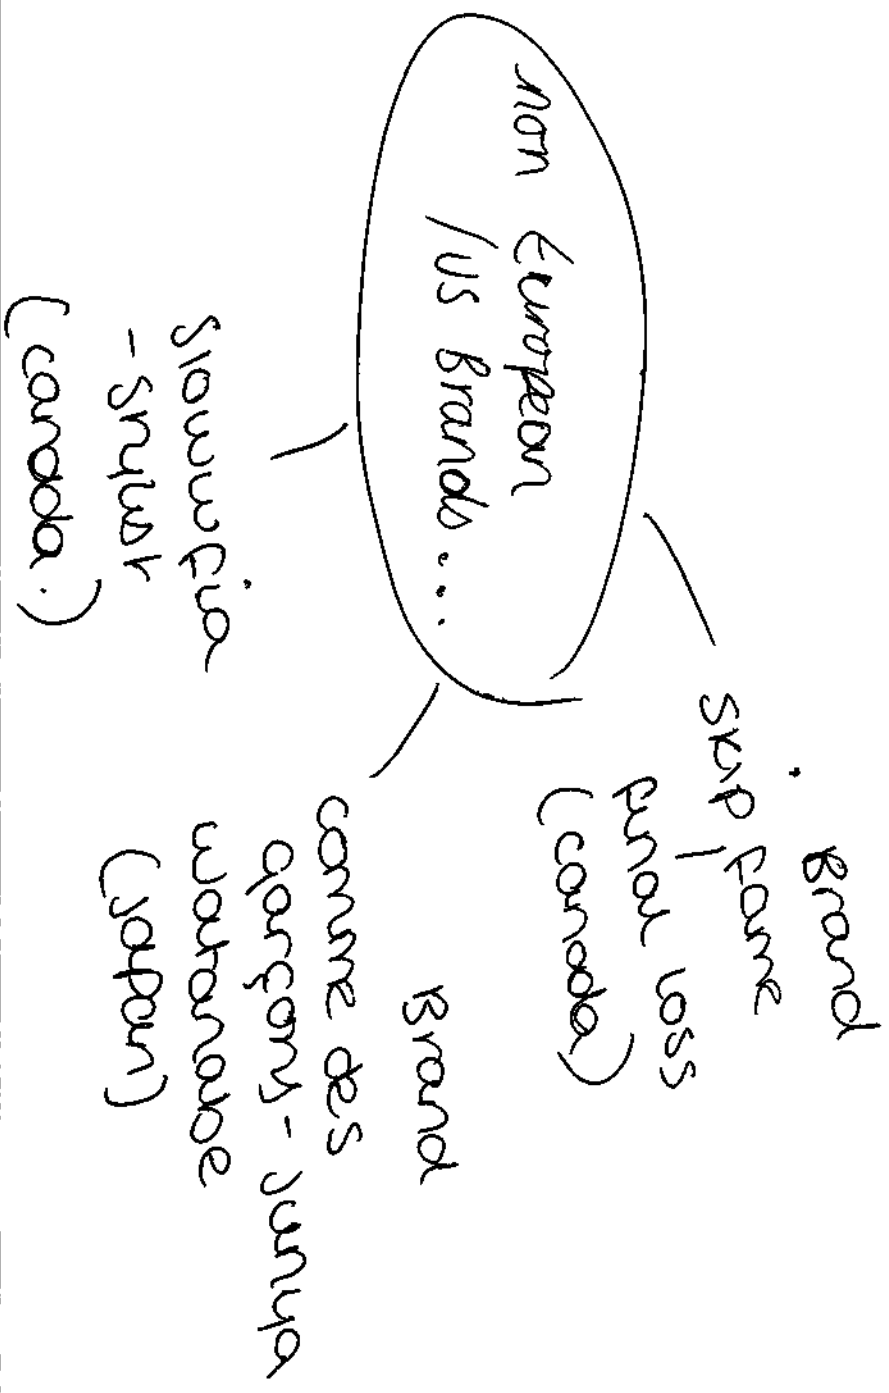 non European
/US Brands...
Brand
Skip fame
/
final loss
(canada)
Brand
comme des
garçons - Junya
watanabe
(Japan)
Slowwfia
- Stylist
(canada.)